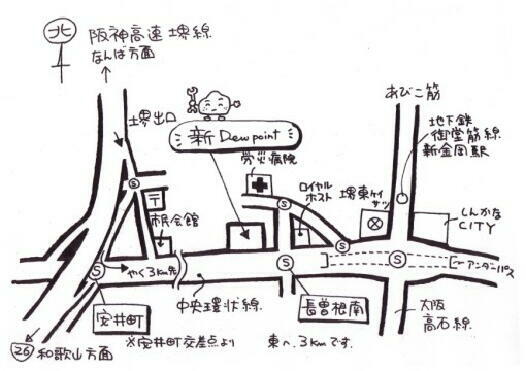 北
阪神高速堺線
なんば方面
堺出口
新 Dewpoint
労災病院
ロイヤル
ホスト
堺東ケイサツ
あびこ筋
地下鉄
御堂筋線
新金岡駅
しんかな
CITY
S
〒
市民会館
S
S
S
S
S
やく3km先
アンダーパス
安井町
中央環状線
長曽根南
大阪
高石線
26 和歌山方面
※安井町交差点より 東へ、3kmです。